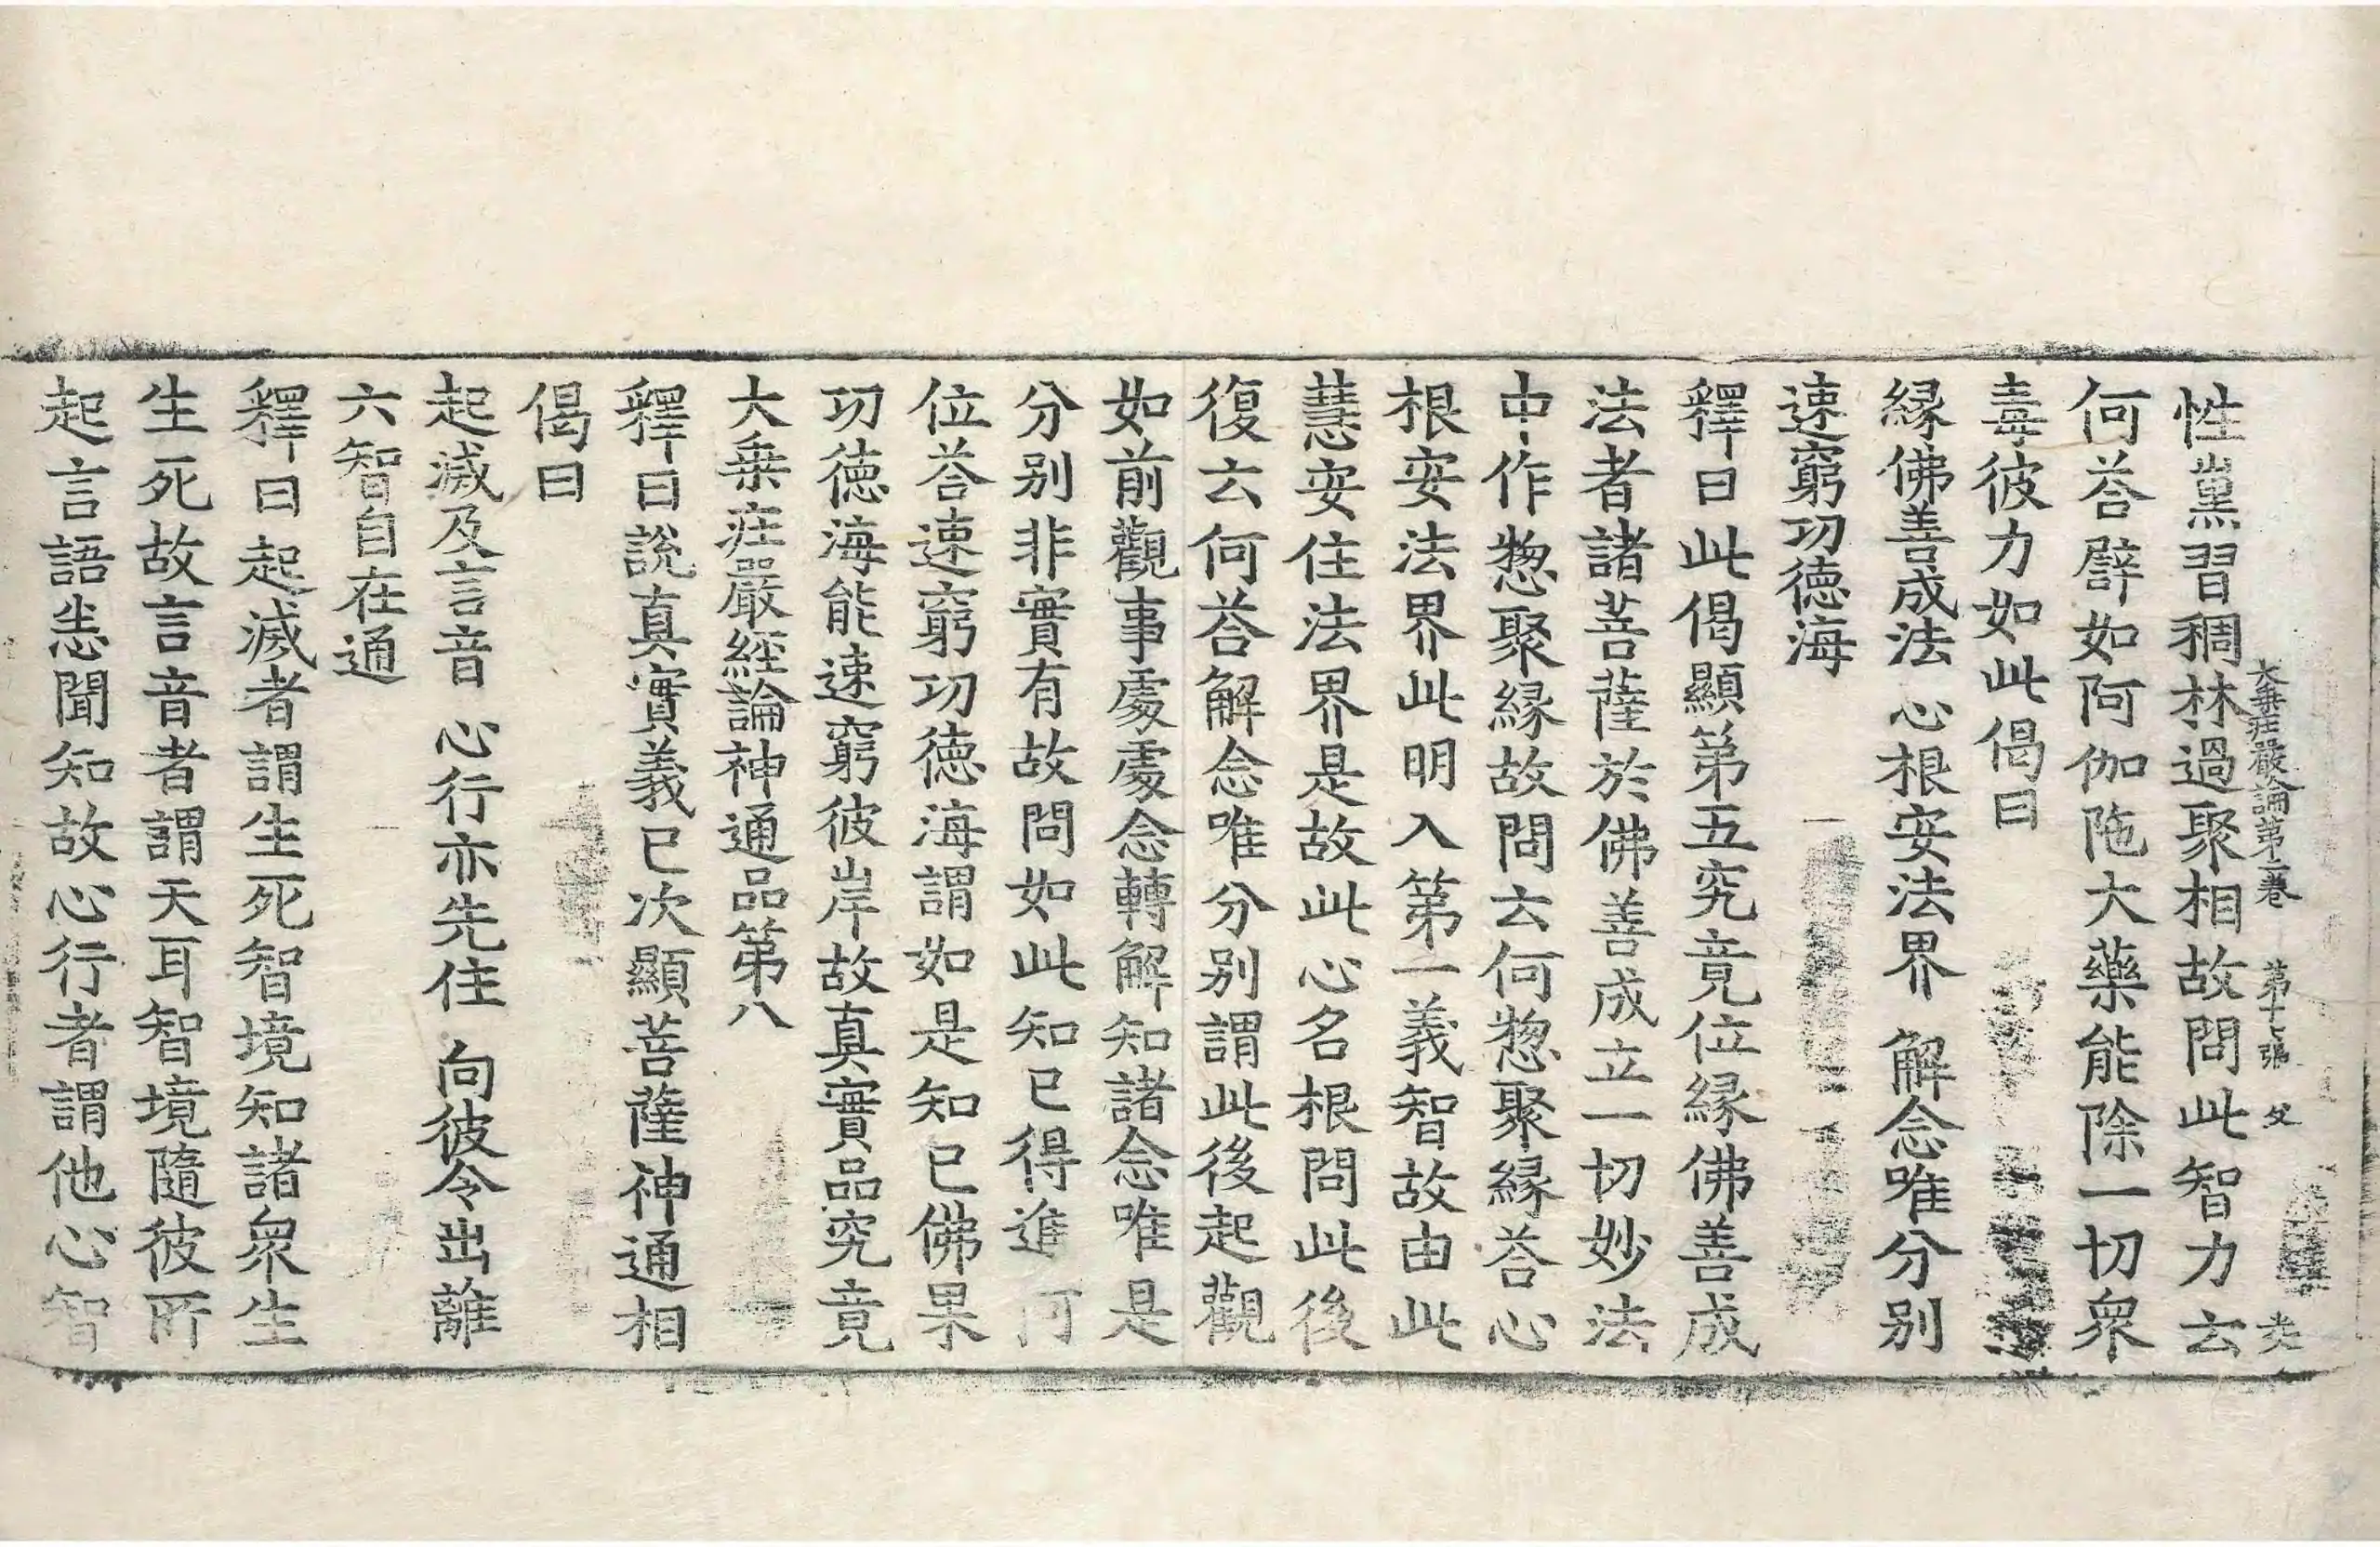 大乗莊嚴論第二卷 第十七張 父
性黨習稠林過聚相故問此智力云
何荅譬如阿伽陁大藥能除一切衆
毒彼力如此偈曰
縁佛善成法 心根安法界 解念唯分别
速窮功德海
釋曰此偈顯第五究竟位縁佛善成
法者諸菩薩於佛善成立一切妙法
中作惣聚縁故問云何惣聚縁荅心
根安法界此明入第一義智故由此
慧安住法界是故此心名根問此後
復云何荅解念唯分别謂此後起觀
如前觀事處處念轉解知諸念唯是
分别非實有故問如此知已得進何
位荅速窮功德海謂如是知已佛果
功德海能速窮彼岸故真實品究竟
大乗莊嚴經論神通品第八
釋曰說真實義已次顯菩薩神通相
偈曰
起滅及言音 心行亦先住 向彼令出離
六智自在通
釋曰起滅者謂生死智境知諸衆生
生死故言音者謂天耳智境隨彼所
起言語悉聞知故心行者謂他心智